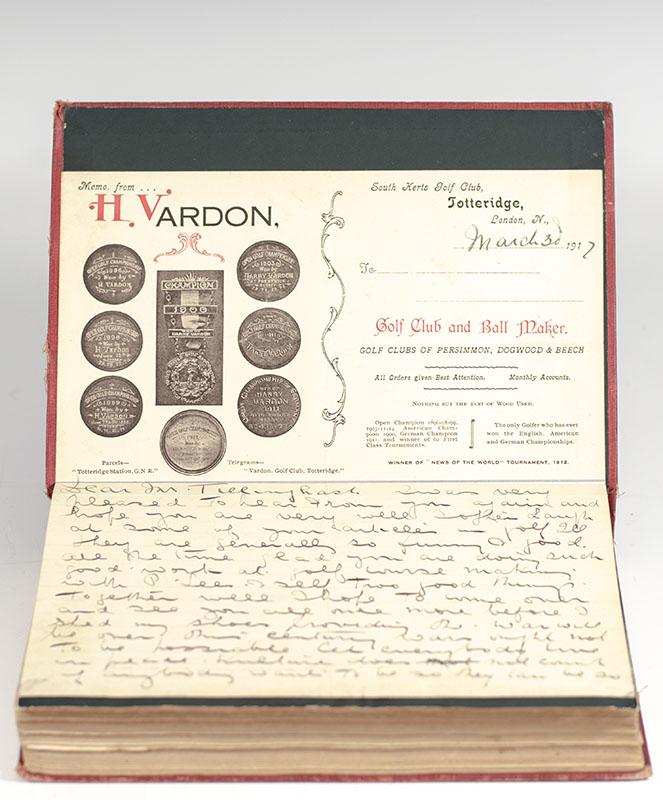 Memo. from ...
H. VARDON,
OPEN GOLF CHAMPIONSHIP
1896
Won by
H. VARDON
OPEN GOLF CHAMPIONSHIP
1903
Won by
HARRY VARDON
CHAMPION
1900
H. VARDON
1899
Won by
H. VARDON
HARRY
VARDON
1911
Parcels—
"Totteridge Station, G.N.R."
Telegrams—
"Vardon, Golf Club, Totteridge."
South Herts Golf Club,
Totteridge,
London, N.,
March 30 1917
To
Golf Club and Ball Maker.
GOLF CLUBS OF PERSIMMON, DOGWOOD & BEECH
All Orders given Best Attention. Monthly Accounts.
NOTHING BUT THE BEST OF WOOD USED.
Open Champion 1896-98-99,
1903-11-14 American Cham-
pion 1900, German Champion
1911. and winner of 62 First
Class Tournaments.
The only Golfer who has ever
won the English, American
and German Championships.
WINNER OF "NEWS OF THE WORLD" TOURNAMENT, 1912.
Dear Mr. Tillinghast I was very
pleased to hear from you again and
hope you are very well I often laugh
at some of your articles in golf
They are generally so funny & good.
all the time glad you are doing such
good work at golf course making
with two good things
together well I hope to come over
and see you all once more before I
shed my shoes providing the war will
be over this century wars ought not
to be possible let everybody live
in peace does not count
if anybody wants to be so they can be so